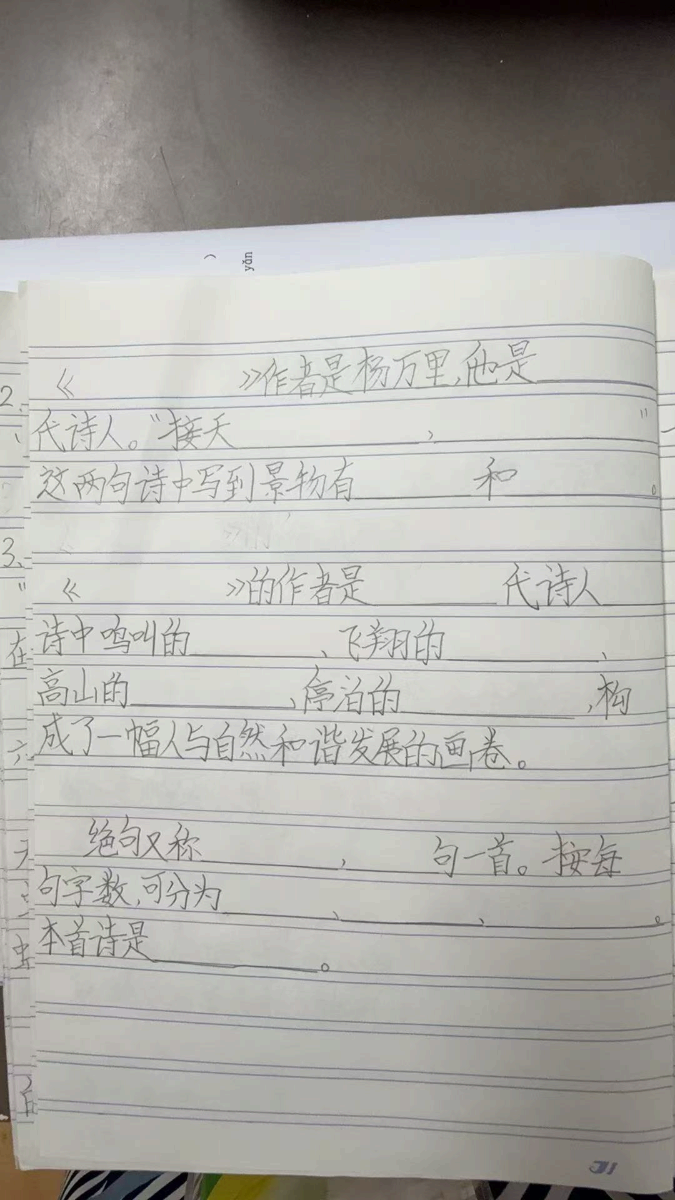 ）
yǎn
《 》作者是杨万里,他是
2.
代诗人。"接天 , "
这两句诗中写到景物有 和 。
3、
《 》的作者是 代诗人
在
诗中鸣叫的 、飞翔的 、
高山的 、停泊的 ,构
成了一幅人与自然和谐发展的画卷。
绝句又称 , 句一首。按每
句字数,可分为 、 、 。
本首诗是 。